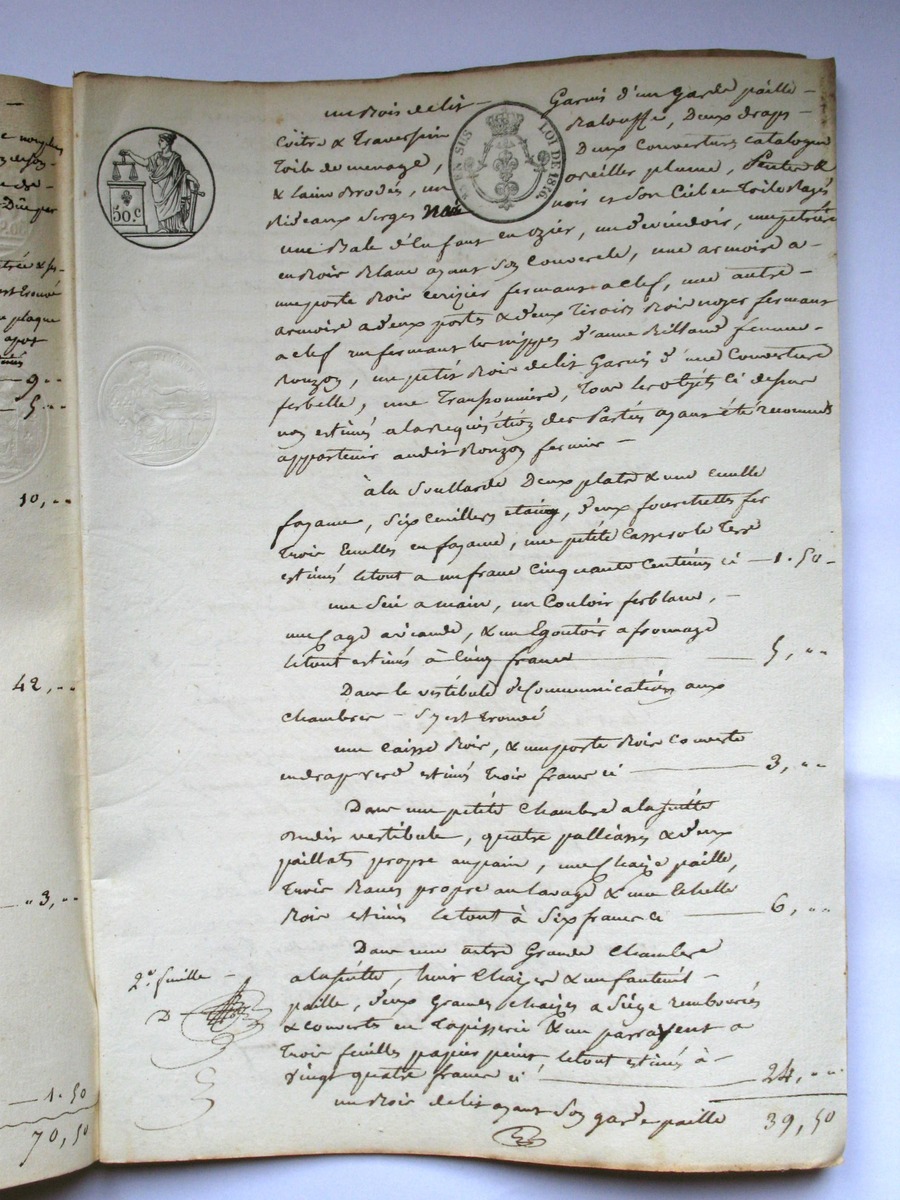 un bois de lit — Garni d'un garde paille —
Coitre & Traversin Balouffe, Deux draps —
Toile de menage, Deux Couvertures catalogne
& laine Brodés, un oreiller plume, Pentes &
Rideaux Serges noir et Son Ciel en Toile Rayés
une Bale d'Enfant en ozier, un devindoir, une petrière
en Bois Blanc ayant Son Couvercle, une armoire a
une porte Bois cerizier fermant a clef, une autre —
armoire a deux portes & deux Tiroirs Bois noyer fermant
a clef renfermant les nippes d'anne Billand femme —
Rouzon, un petit Bois de lit Garni d'une Couverture
ferbelle, une Transponnière, Tous les objets ci dessus
non estimés a la Requisition des Parties ayant été reconnus
appartenir audit Rouzon fermier —
à la Souillarde Deux plats & une Ecuelle
fayance, Six cuillers etaing, deux fourchettes fer
Trois Ecuelles en fayance, une petite Casserole Terre
estimés le tout a un franc Cinquante Centimes ci — 1.50 -
une Scie a main, un Couloir ferblanc, —
une Cage a viande, & un Egoutoir a fromage
le tout estimés à Cinq francs — 5, ..
Dans le vestibule de Communication aux
chambres — S'y est trouvé
une caisse Bois, & une porte Bois couverte
en drap verd estimés trois francs ci — 3, ..
Dans une petite Chambre a la suitte
dudit vestibule, quatre palliasses & deux
paillats propre au pain, une Chaize paille,
Trois Bancs propre au lavage & une Echelle
Bois estimés le tout à Six francs ci — 6, ..
Dans une autre Grande Chambre
a la suitte, huit Chaizes & un fauteuil —
paille, deux Grandes chaizes a Siége rembourrés
& couverts en Tapisserie & un parravent a
Trois feuilles papier peint le tout estimés à —
vingt quatre francs ci — 24, ..
un Bois de lit ayant Son garde paille 39,50
50.c
EN SUS
LOI DE 1816.
2.e feuille —
D
9 ..
5 ..
10, ..
42, ..
3, ..
1.50
70,50